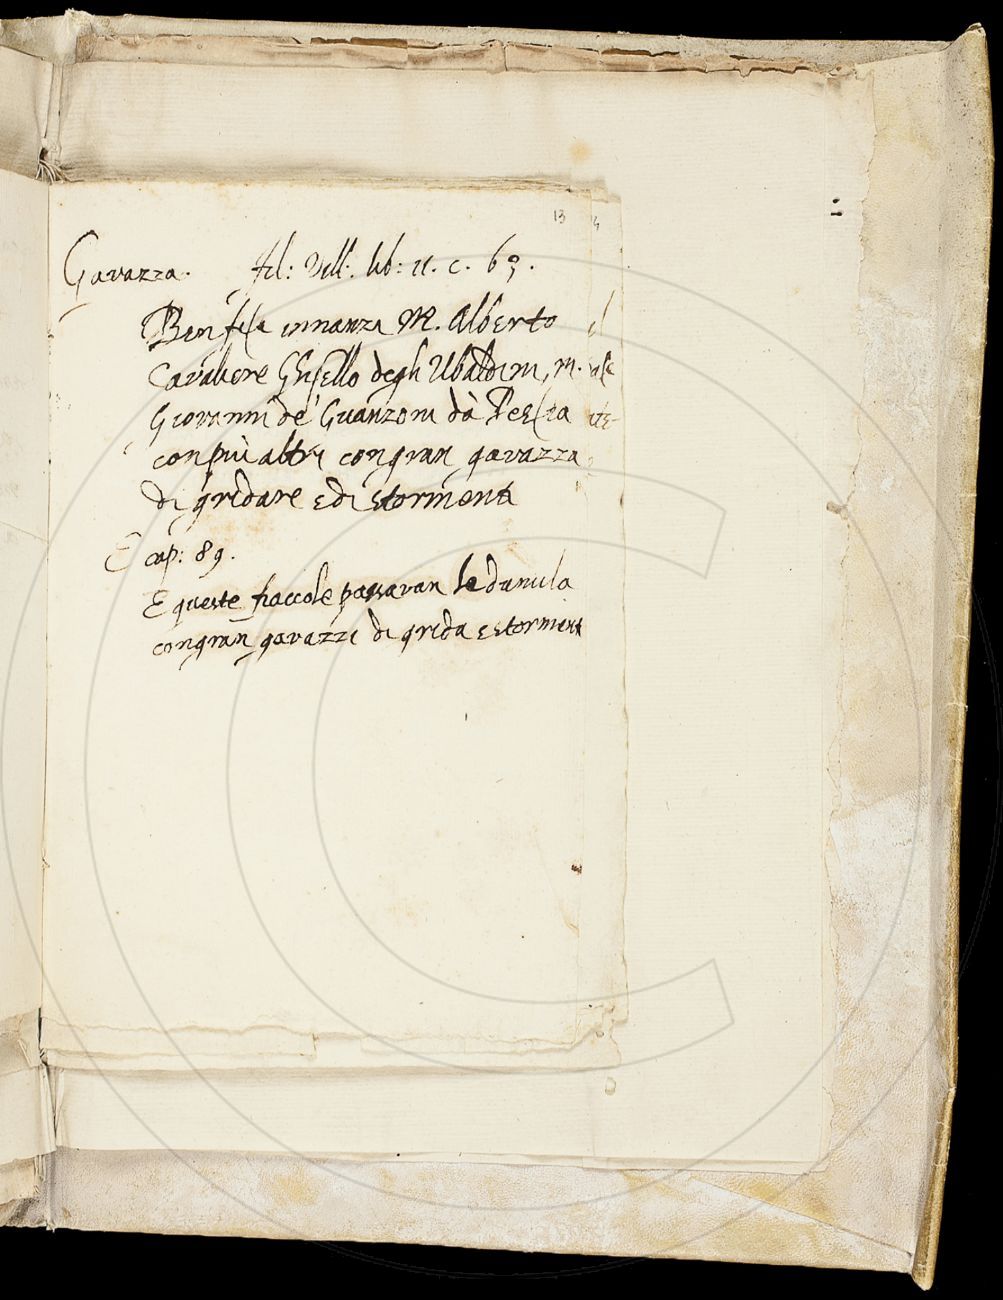 13
Gavazza. fil: Vill: lib: 11. c. 69.
Ben fece innanzi M. Alberto
Cavaliere Ghisello degli Ubaldini, M.
Giovanni de' Guanzoni dà Pescia
con più altri con gran gavazza
di gridare e di stormenti
E cap: 89.
E queste fiaccole passavan
con gran gavazze di grida e stormenti